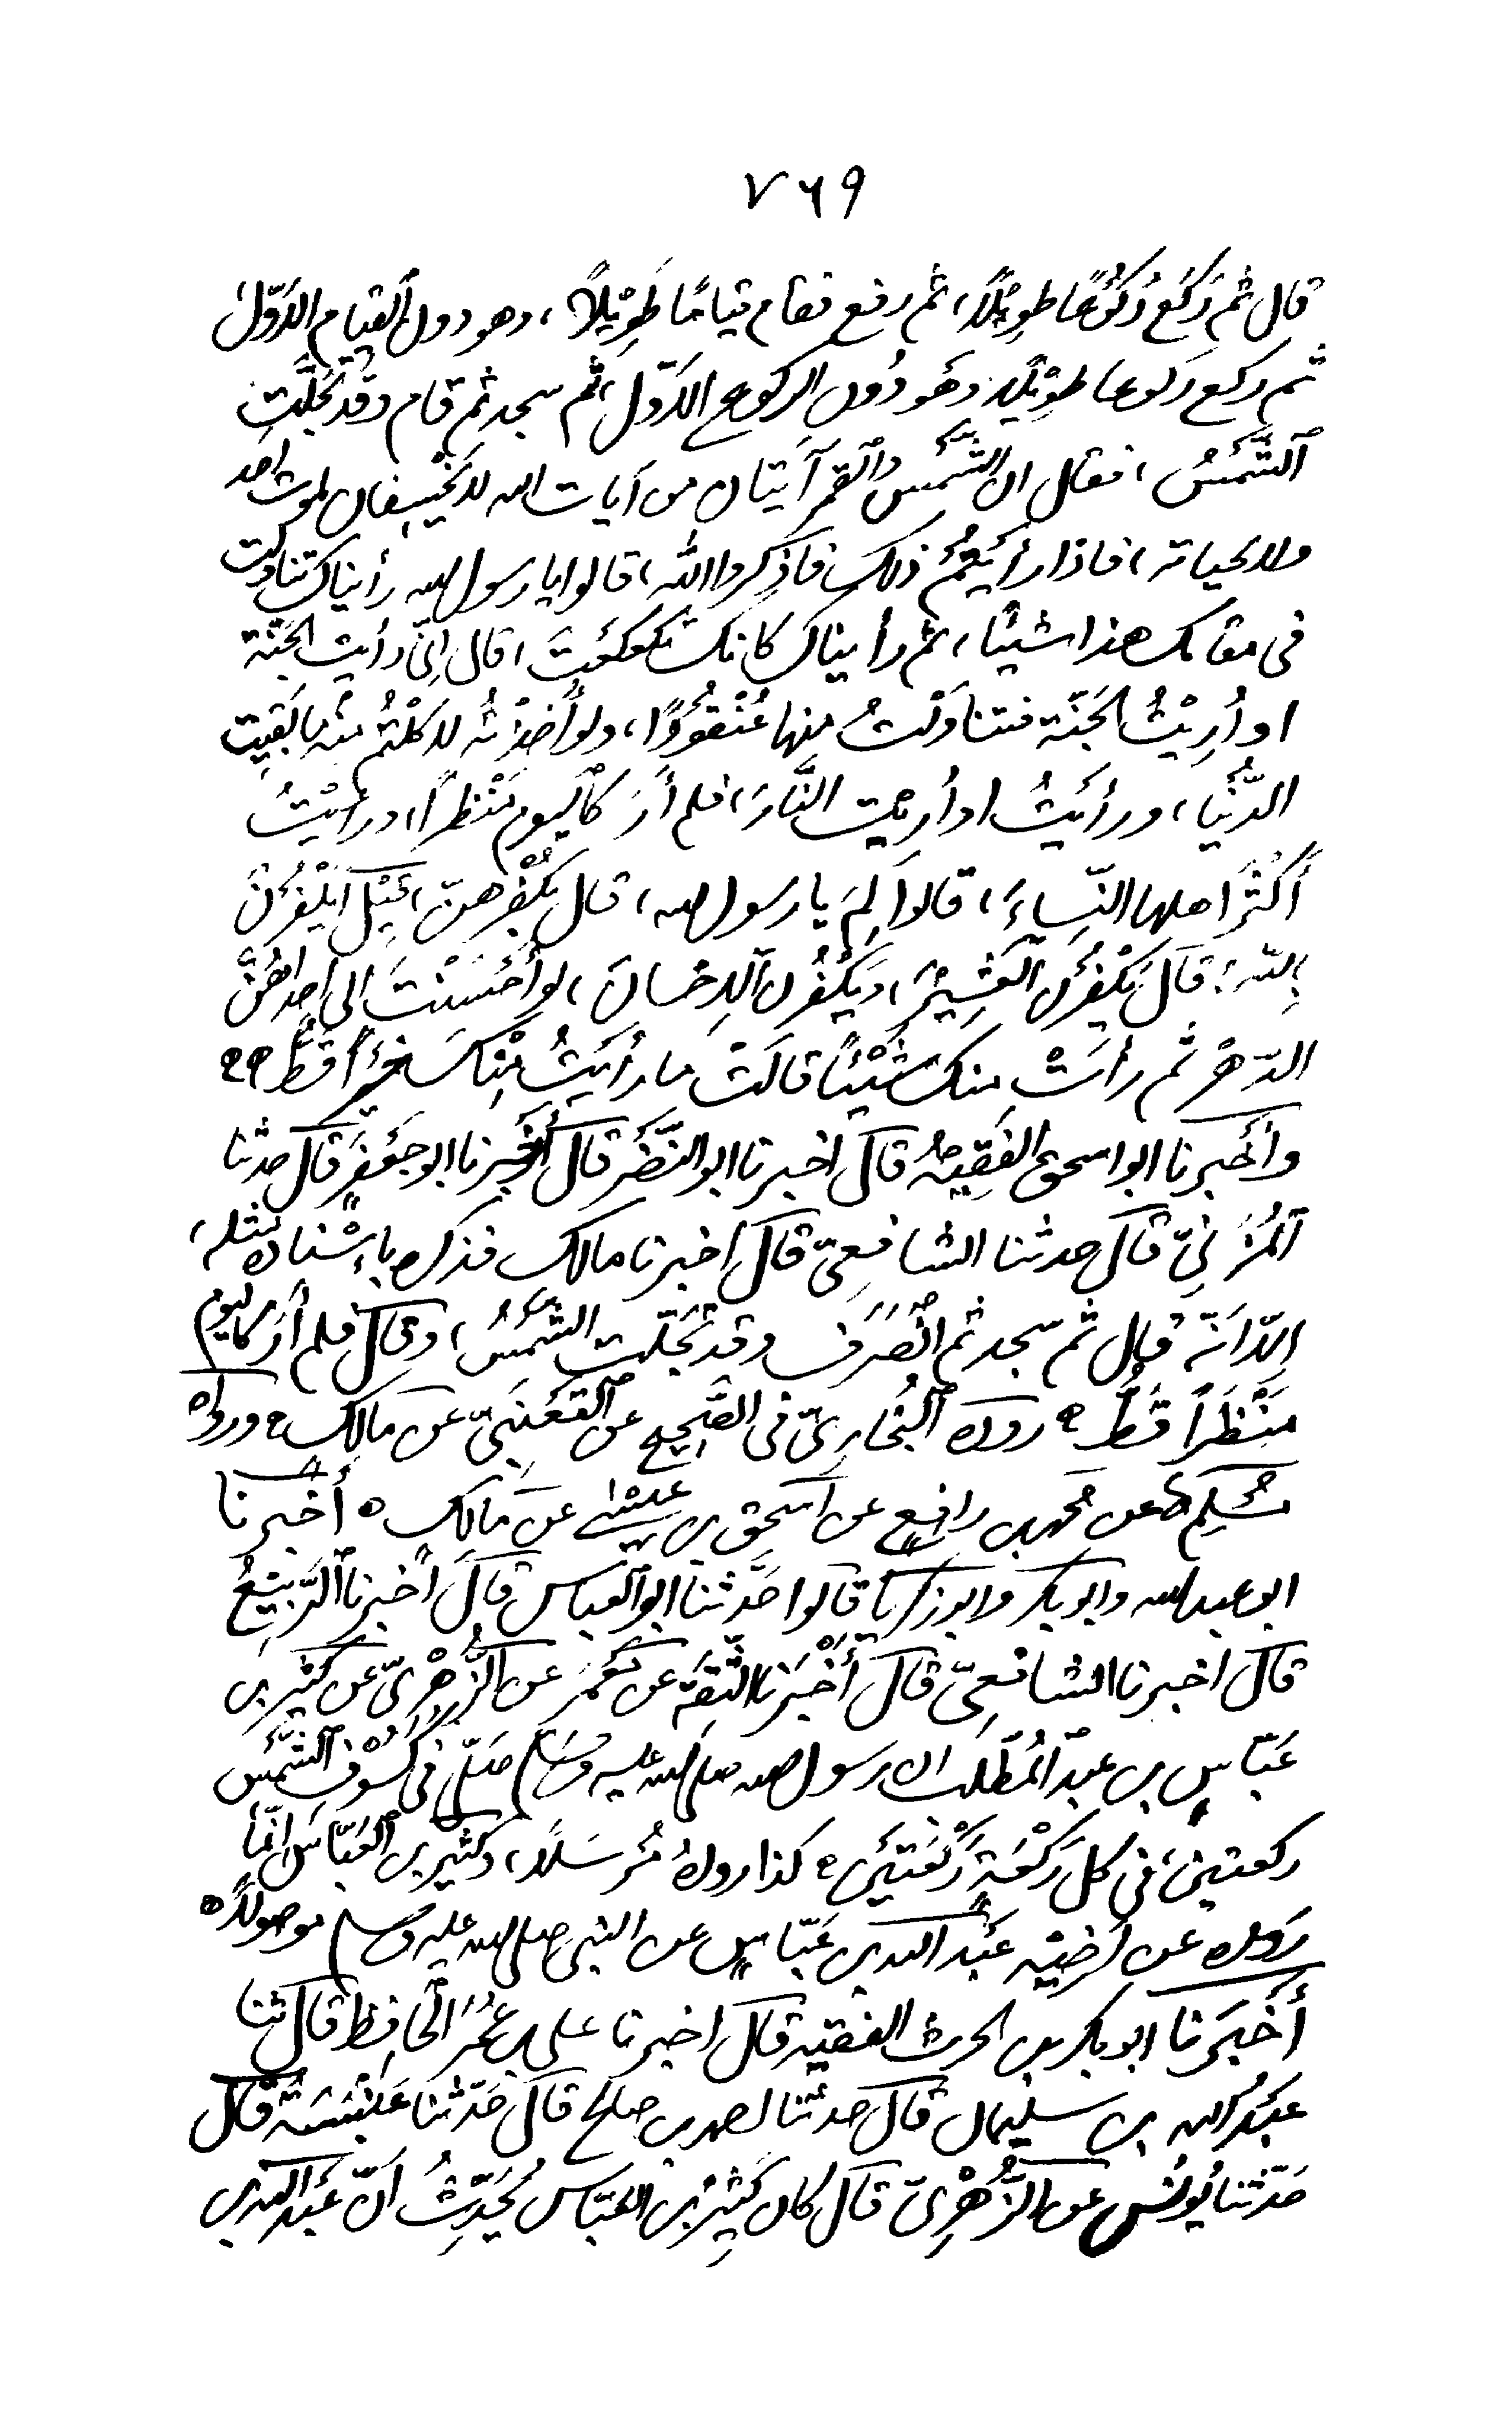 ٧٦٩
قال ثم رَكَعَ رُكُوْعًا طوِيْلًا، ثم رفع فقام قيامًا طَوِيْلاً، وهو دون القيام الاَوّل
ثم ركع ركوعا طوِيْلا وهَو دُون الركوع الاَوّل ثم سجد ثم قام وقد تَجَلَّتِ
الشَّمْسُ، فقال ان الشَّمْس والقمر آيَتان من آيات الله لا يَخْسِفان لموت احد
ولا لحياته، فاذا رأيتُمْ ذلك فاذكروا اللهَ، قالوا يا رسول الله رأيناك تناولت
فى مقامك هذا شيئًا، ثم رأيناك كانك تكعكَعتَ، قال اِنّى رأيت الجَنّة
او أُرِيْتُ الجَنّة فتناوَلْتُ منها عُنْقُوْدًا، ولو أَخَذْتُه لاكلْتُم منْه ما بَقيَت
الدُّنْيا، ورأيَتُ او أُريت النَّارَ، فلم أَرَ كاليوم مَنْظراً، ورأيْتُ
أكثرَ اهلها النِّساءَ، قالوا لِمَ يا رسول الله، قال بكُفْرِهنّ، قِيْلَ ايَكْفُرْنَ
بالله؛ قالَ يَكْفُرْنَ العَشِيْرَ، ويَكْفُرْنَ الاِحسانَ، لو أَحْسَنْتَ الى اِحداهُنَّ
الدّهرَ ثم رأَتْ منك شَيْئًا قالَتْ ما رأيَتُ مِنْكَ خيرًا قَطُّ ٥٥
وأَخْبرنا ابو اسحق الفَقِيهُ قال اخبرنا ابو النَّضْر قال أَخْبَرنا ابو جَعْفَرٍ قال حدثنا
المُزَنِىّ قال حدثنا الشافِعِىّ قال اخبرنا مالك فذكره باِسْناده مثله،
اِلّا اَنّه قال ثم سجد ثم انْصَرَف وقد تَجَلَّت الشَّمْسُ، وقال فلم أَرَ كاليوم
مَنْظَراً قَطُّ ٥ رواه البُخارِىّ فى الصَّحِيح عن القَعْنَبِىّ عن مالِك ٥ ورواه
مُسْلِم عن محمد بن رافِعٍ عن اسحق بن عيسٰى عن مَالِك ٥ أَخْبرنا
ابو عبد الله وابو بكر وابو زكريّا قالوا حَدَّثنا ابو العباس قالَ أَخبرنا الرَّبِيْعُ
قال اخبرنا الشافعِىّ قال أَخْبَرَنا الثِّقَة عن مَعْمَر عن الزُّهْرِىّ عن كثير بن
عَبّاسٍ بن عبد المُطَّلب ان رسول الله صلى الله عليه وسَلم صَلّى فى كُسُوْف الشَّمْس
ركعتين، فى كل رَكْعَةٍ رَكْعَتَيْنِ ٥ كذا رواهُ مُرسَلًا، وكثير بن العَبّاس اِنّما
رَواه عن أخيْه عَبْد الله بن عَبّاسٍ عن النبى صلى الله عليه وسلم موصولًا ٥
أَخْبَرنا ابو بكر بن الحرث الفقيه قال اخبرنا على بن عُمَرَ الحافِظ قال ثنا
عَبْدُ الله بن سليمان قال حدثنا احمد بن صالح قال حَدّثنا عَنْبَسَة قال
حَدّثنا يُونُس عن الزُّهْرِىّ قال كان كَثِيْرُ بن العَبّاس يُحَدِّثُ اَنّ عَبْد الله بن